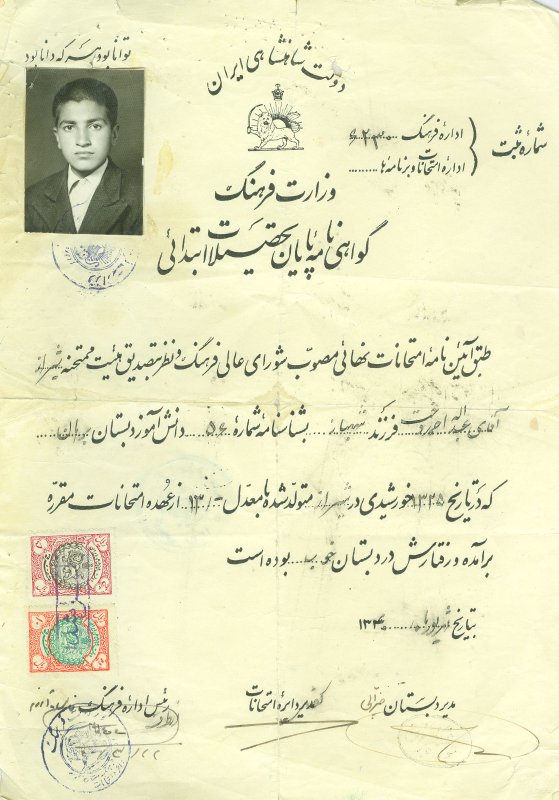 توانا بود هر که دانا بود
دولت شاهنشاهی ایران
شماره ثبت
اداره فرهنگ
اداره امتحانات و برنامه ها
وزارت فرهنگ
گواهی نامه پایان تحصیلات ابتدائی
طبق آئین نامه امتحانات نهائی مصوب شورای عالی فرهنگ و نظر بتصدیق هیئت ممتحنه شیراز
آقای فرزند بشناسنامه شماره ۵۶ دانش آموز دبستان
که در تاریخ ۱۳۲۵ خورشیدی در شیراز متولد شده با معدل از عهده امتحانات مقرره
برآمده و رفتارش در دبستان خوب بوده است
بتاریخ ۱۳۴۰
مدیر دبستان
مدیر دایره امتحانات
رئیس اداره فرهنگ